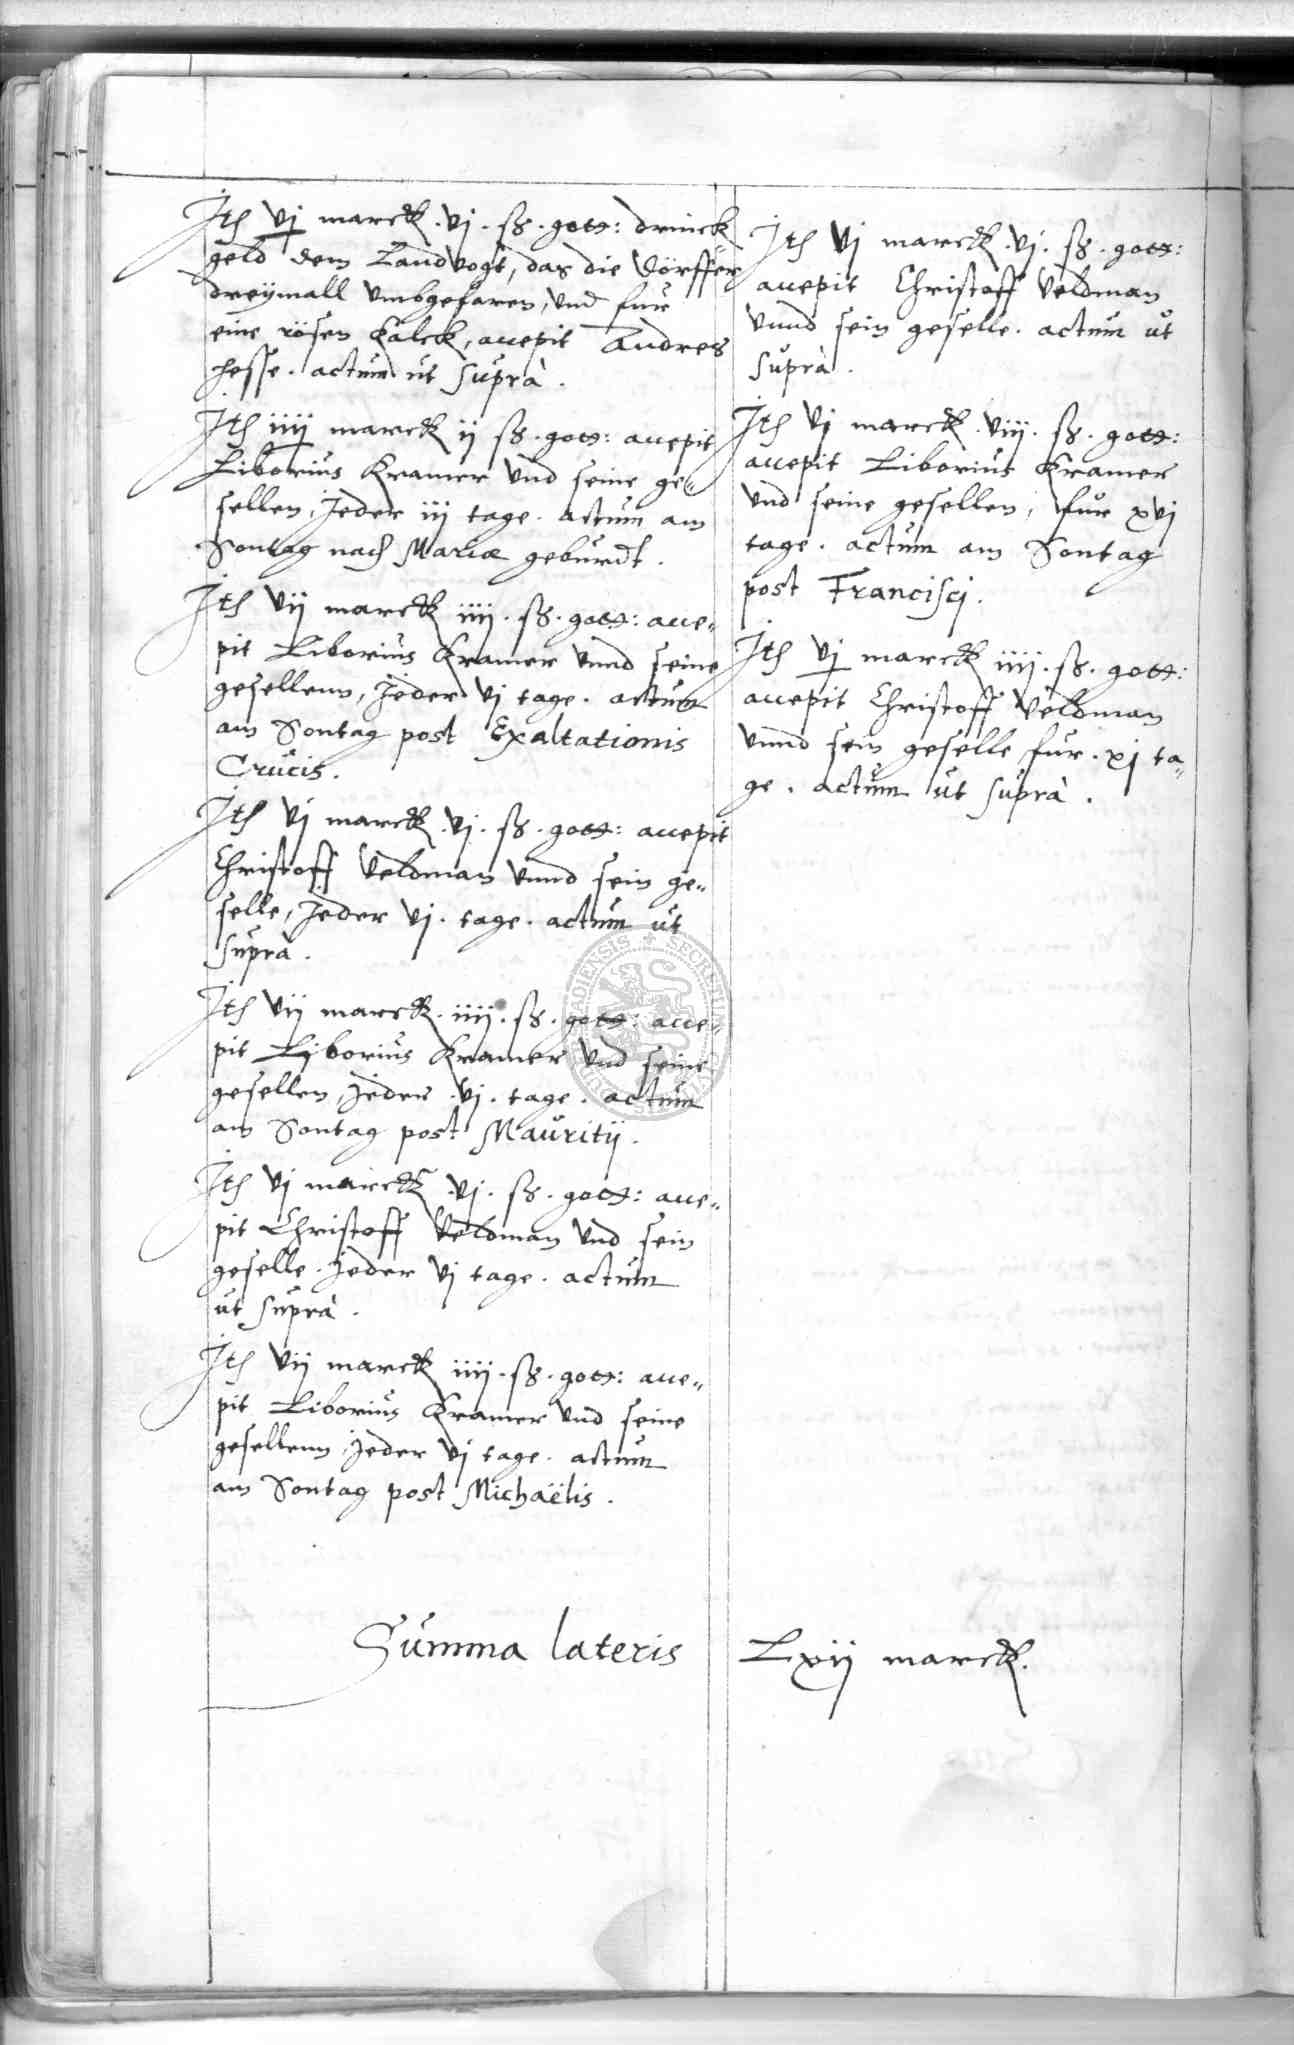 Jtē vj marck . vj . ß . gott: drinck
geld dem Landvogt, das die dörffer
dreÿmall umbgefaren, und fur
eine rösen Kalck, accepit Andres
Hesse . actum ut suprà .
Jtē iiij marck ij ß . gott: accepit
Liborius Kramer und seine ge„
sellen, Jeder iij tage . actum am
Sontag nach Mariæ geburdt .
Jtē vij marck iiij . ß . gott: acce„
pit Liborius Kramer unnd seine
gesellenn, Jeder vj tage . actum
am Sontag post Exaltationis
Crucis .
Jtē vj marck . vj . ß . gott: accepit
Christoff Veldman unnd sein ge„
selle, Jeder vj . tage . actum ut
suprà .
Jtē vij marck . iiij . ß . gott: acce„
pit Lyborius Kramer und seine
gesellen, Jeder . vj . tage . actum
am Sontag post Mauritij .
Jtē vj marck . vj . ß . gott: acce„
pit Christoff Veldman und sein
geselle . Jeder vj tage . actum
ut suprà .
Jtē vij marck iiij . ß . gott: acce„
pit Liborius Kramer und seine
gesellenn, Jeder vj tage . actum
am Sontag post Michaëlis .
Jtē vj marck . vj . ß . gott:
accepit Christoff Veldman
unnd sein geselle . actum ut
suprà .
Jtē vj marck . viij . ß . gott:
accepit Liborius Kramer
und seine gesellen, fur xvj
tage . actum am Sontag
post Francisci .
Jtē vj marck iiij . ß . gott:
accepit Christoff Veldman
unnd sein geselle fur . xj ta„
ge . actum ut suprà .
Summa lateris Lxij marck .